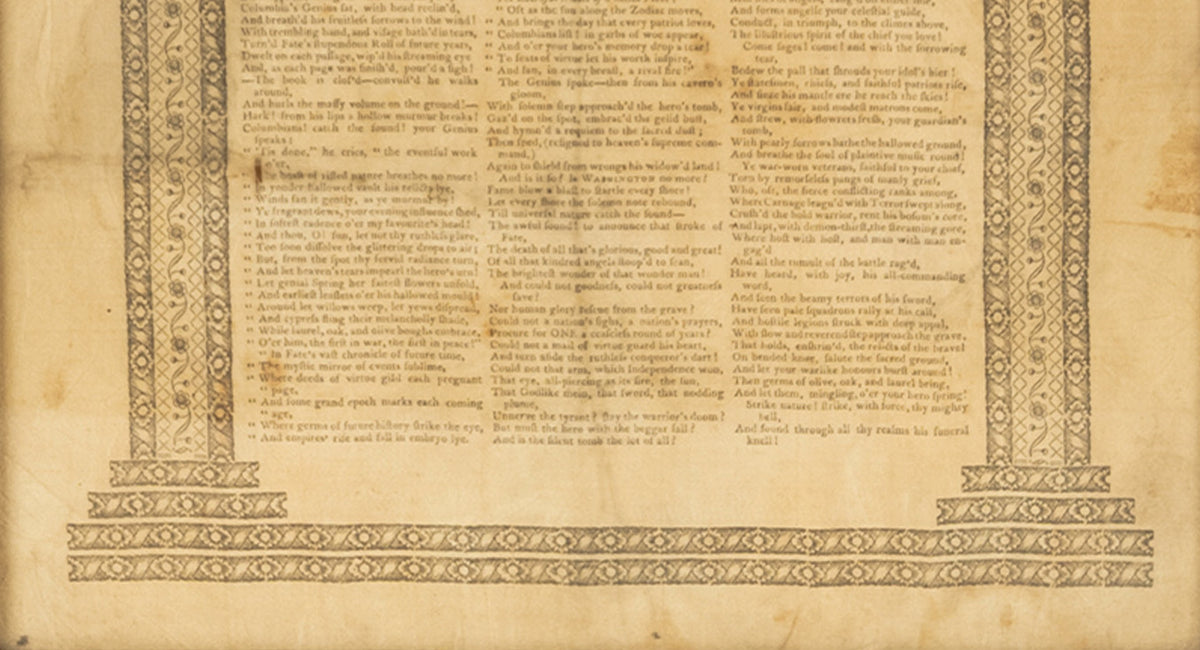 Columbia's Genius sat, with head reclin'd,
And breath'd his fruitless sorrows to the wind!
With trembling hand, and visage bath'd in tears,
Turn'd Fate's stupendous Roll of future years,
Dwelt on each passage, wip'd his streaming eye
And, as each page was finish'd, pour'd a sigh!
—The book is clos'd—convuls'd he walks
around,
And hurls the massy volume on the ground!—
Hark! from his lips a hollow murmur breaks!
Columbians! catch the sound! your Genius
speaks!
“ 'Tis done,” he cries, “ the eventful work
o'er,
The bosom of rifled nature breathes no more!
“ In yonder hallowed vault his relicts lye,
“ Winds fan it gently, as ye murmur by!
“ Ye fragrant dews, your evening influence shed,
“ In softest cadence o'er my favourite's head!
“ And thou, O! sun, let not thy ruthless glare,
“ Too soon dissolve the glittering drops to air;
“ But, from the spot thy fervid radiance turn,
“ And let heaven's tears impearl the hero's urn!
“ Let genial Spring her fairest flowers unfold,
“ And earliest leaflets o'er his hallowed mould!
“ Around let willows weep, let yews dispread,
“ And cypress fling their melancholly shade,
“ While laurel, oak, and olive boughs embrace,
“ O'er him, the first in war, the first in peace!”
“ In Fate's vast chronicle of future time,
“ The mystic mirror of events sublime,
“ Where deeds of virtue gild each pregnant
“ page,
“ And some grand epoch marks each coming
“ age,
“ Where germs of future history strike the eye,
“ And empires' rise and fall in embryo lye.
“ Oft as the sun along the Zodiac moves,
“ And brings the day that every patriot loves,
“ Columbians list! in garbs of woe appear,
“ And o'er your hero's memory drop a tear!
“ To feats of virtue let his worth inspire,
“ And fan, in every breast, a rival fire!”
The Genius spoke—then from his cavern's
gloom,
With solemn step approach'd the hero's tomb,
Gaz'd on the spot, embrac'd the geild bust,
And hymn'd a requiem to the sacred dust;
Then sped, (resign'd to heaven's supreme com-
mand,)
Again to shield from wrongs his widow'd land!
And is it so? Is WASHINGTON no more?
Fame blow a blast to startle every shore!
Let every shore the solemn note rebound,
Till universal nature catch the sound—
The awful sound! to announce that stroke of
Fate,
The death of all that's glorious, good and great!
Of all that kindred angels stoop'd to scan,
The brightest wonder of that wonder man!
And could not goodness, could not greatness
save?
Nor human glory rescue from the grave?
Could not a nation's sighs, a nation's prayers,
Procure for ONE a ceaseless round of years?
Could not a mail of virtue guard his heart,
And turn aside the ruthless conqueror's dart!
Could not that arm, which Independence won,
That eye, all-piercing as its sire, the sun,
That Godlike mein, that sword, that nodding
plume,
Unnerve the tyrant? stay the warrior's doom?
But must the hero with the beggar fall?
And is the silent tomb the lot of all?
And forms angelic your celestial guide,
Conduct, in triumph, to the climes above,
The illustrious spirit of the chief you love!
Come sages! come! and with the sorrowing
tear,
Bedew the pall that shrouds your idol's bier!
Ye statesmen, chiefs, and faithful patriots rise,
And seize his mantle ere he reach the skies!
Ye virgins fair, and modest matrons come,
And strew, with flowers fresh, your guardian's
tomb,
With pearly sorrows bathe the hallowed ground,
And breathe the soul of plaintive music round!
Ye war-worn veterans, faithful to your chief,
Torn by remorseless pangs of manly grief,
Who, oft, the fierce conflicting ranks among,
Where Carnage leagu'd with Terror swept along,
Crush'd the bold warrior, rent his bosom's core,
And lapt, with demon-thirst, the streaming gore,
Where host with host, and man with man en-
gag'd
And all the tumult of the battle rag'd,
Have heard, with joy, his all-commanding
word,
And seen the beamy terrors of his sword,
Have seen pale squadrons rally at his call,
And hostile legions struck with deep appal,
With slow and reverend step approach the grave,
That holds, enshrin'd, the relicts of the brave!
On bended knee, salute the sacred ground,
And let your warlike honours burst around!
Then germs of olive, oak, and laurel bring,
And let them, mingling, o'er your hero spring!
Strike nature! strike, with force, thy mighty
bell,
And sound through all thy realms his funeral
knell!